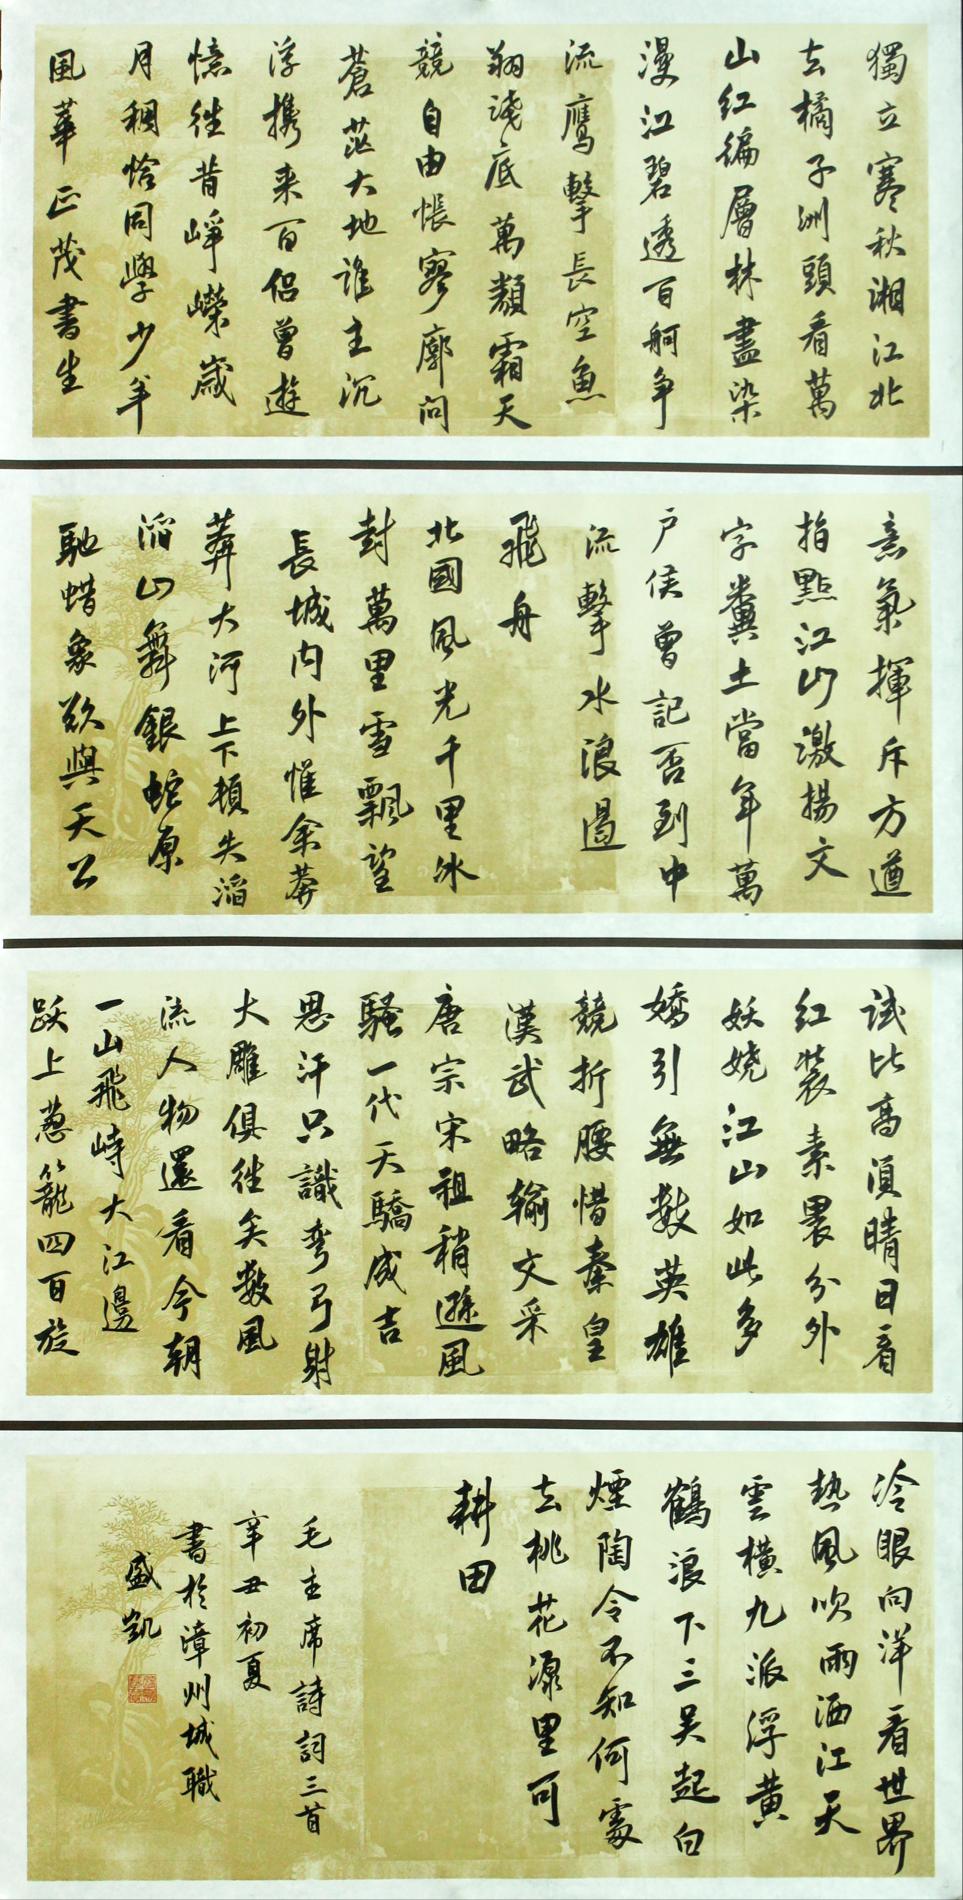 獨立寒秋湘江北
去橘子洲頭看萬
山紅徧層林盡染
漫江碧透百舸争
流鹰擊長空魚
翔淺底萬類霜天
競自由悵寥廓問
蒼茫大地誰主沉
浮攜来百侣曾遊
憶往昔崢嶸歲
月稠恰同學少年
風華正茂書生
意氣揮斥方遒
指點江山激揚文
字糞土當年萬
户侯曾記否到中
流擊水浪遏
飛舟
北國風光千里冰
封萬里雪飄望
長城内外惟余莽
莽大河上下頓失滔
滔山舞銀蛇原
馳蜡象欲與天公
試比高須晴日看
红裝素裹分外
妖娆江山如此多
嬌引無數英雄
競折腰惜秦皇
漢武略輸文采
唐宗宋祖稍遜風
騷一代天驕成吉
思汗只識彎弓射
大雕俱往矣數風
流人物還看今朝
一山飛峙大江邊
跃上葱籠四百旋
冷眼向洋看世界
熱風吹雨洒江天
雲横九派浮黄
鶴浪下三吴起白
煙陶令不知何處
去桃花源里可
耕田
毛主席詩詞三首
辛丑初夏
書於漳州城職
盛凱